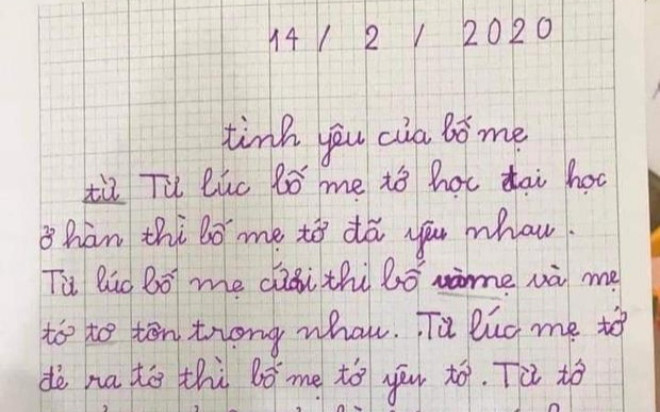 14 / 2 / 2020
tình yêu của bố mẹ
từ Từ lúc bố mẹ tớ học đại học
ở hàn thì bố mẹ tớ đã yêu nhau.
Từ lúc bố mẹ cưới thì bố và mẹ và mẹ
tớ tơ tôn trọng nhau. Từ lúc mẹ tớ
đẻ ra tớ thì bố mẹ tớ yêu tớ. Từ tớ